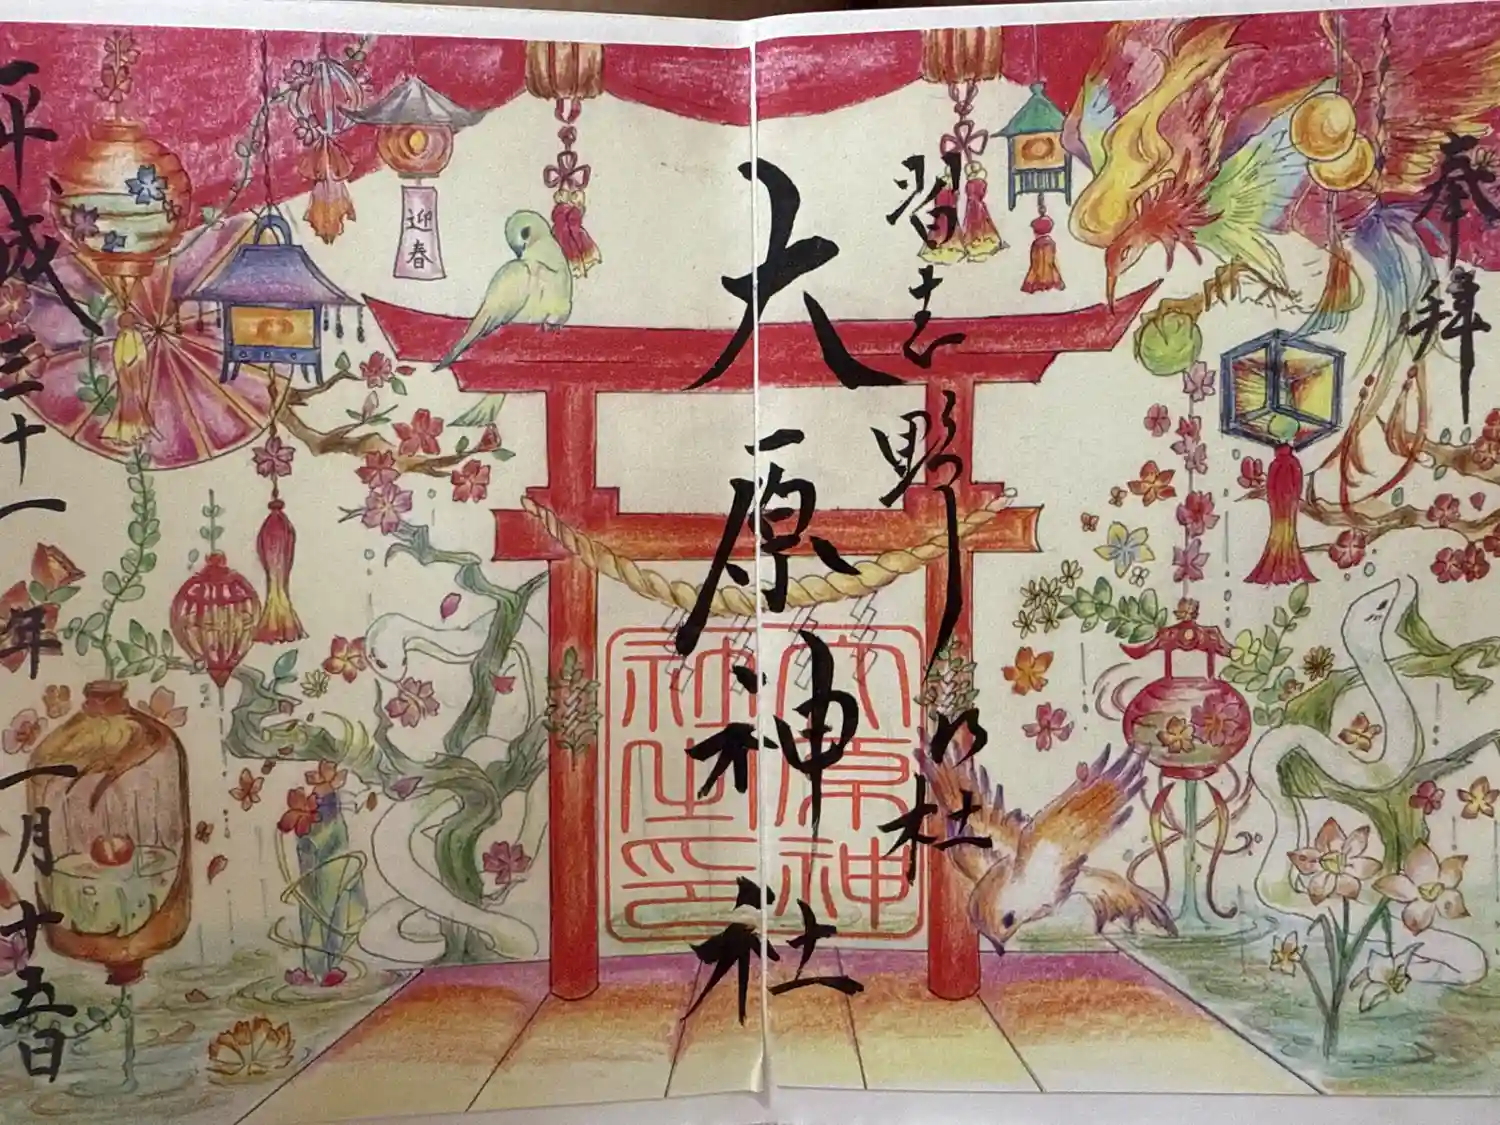 奉拝
習志野の杜
大原神社
大原神
社之印
平成三十一年一月十五日
迎春